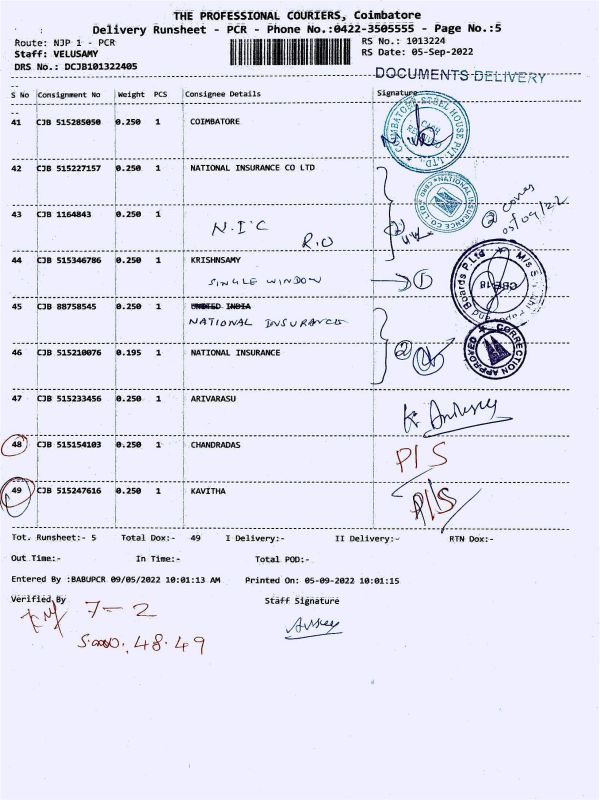 THE PROFESSIONAL COURIERS, Coimbatore
Delivery Runsheet - PCR - Phone No.:0422-3505555 - Page No.:5
Route: NJP 1 - PCR RS No.: 1013224
Staff: VELUSAMY RS Date: 05-Sep-2022
DRS No.: DCJB101322405
DOCUMENTS DELIVERY
S No Consignment No Weight PCS Consignee Details Signature
41 CJB 515285050 0.250 1 COIMBATORE
COIMBATORE STEEL HOUSE PVT. LTD.
42 CJB 515227157 0.250 1 NATIONAL INSURANCE CO LTD
NATIONAL INSURANCE CO LTD
43 CJB 1164843 0.250 1
N.I'C R.O
② 05/09/22
44 CJB 515346786 0.250 1 KRISHNSAMY
SINGLE WINDOW ①
and Boards P.Ltd M/s
45 CJB 88758545 0.250 1 UNITED INDIA
NATIONAL INSURANCE
46 CJB 515210076 0.195 1 NATIONAL INSURANCE
②
CORRECTION APPROVED
47 CJB 515233456 0.250 1 ARIVARASU
48 CJB 515154103 0.250 1 CHANDRADAS
P/S
49 CJB 515247616 0.250 1 KAVITHA
P/S
Tot. Runsheet:- 5 Total Dox:- 49 I Delivery:- II Delivery:- RTN Dox:-
Out Time:- In Time:- Total POD:-
Entered By :BABUPCR 09/05/2022 10:01:13 AM Printed On: 05-09-2022 10:01:15
Verified By Staff Signature
7-2
48.49